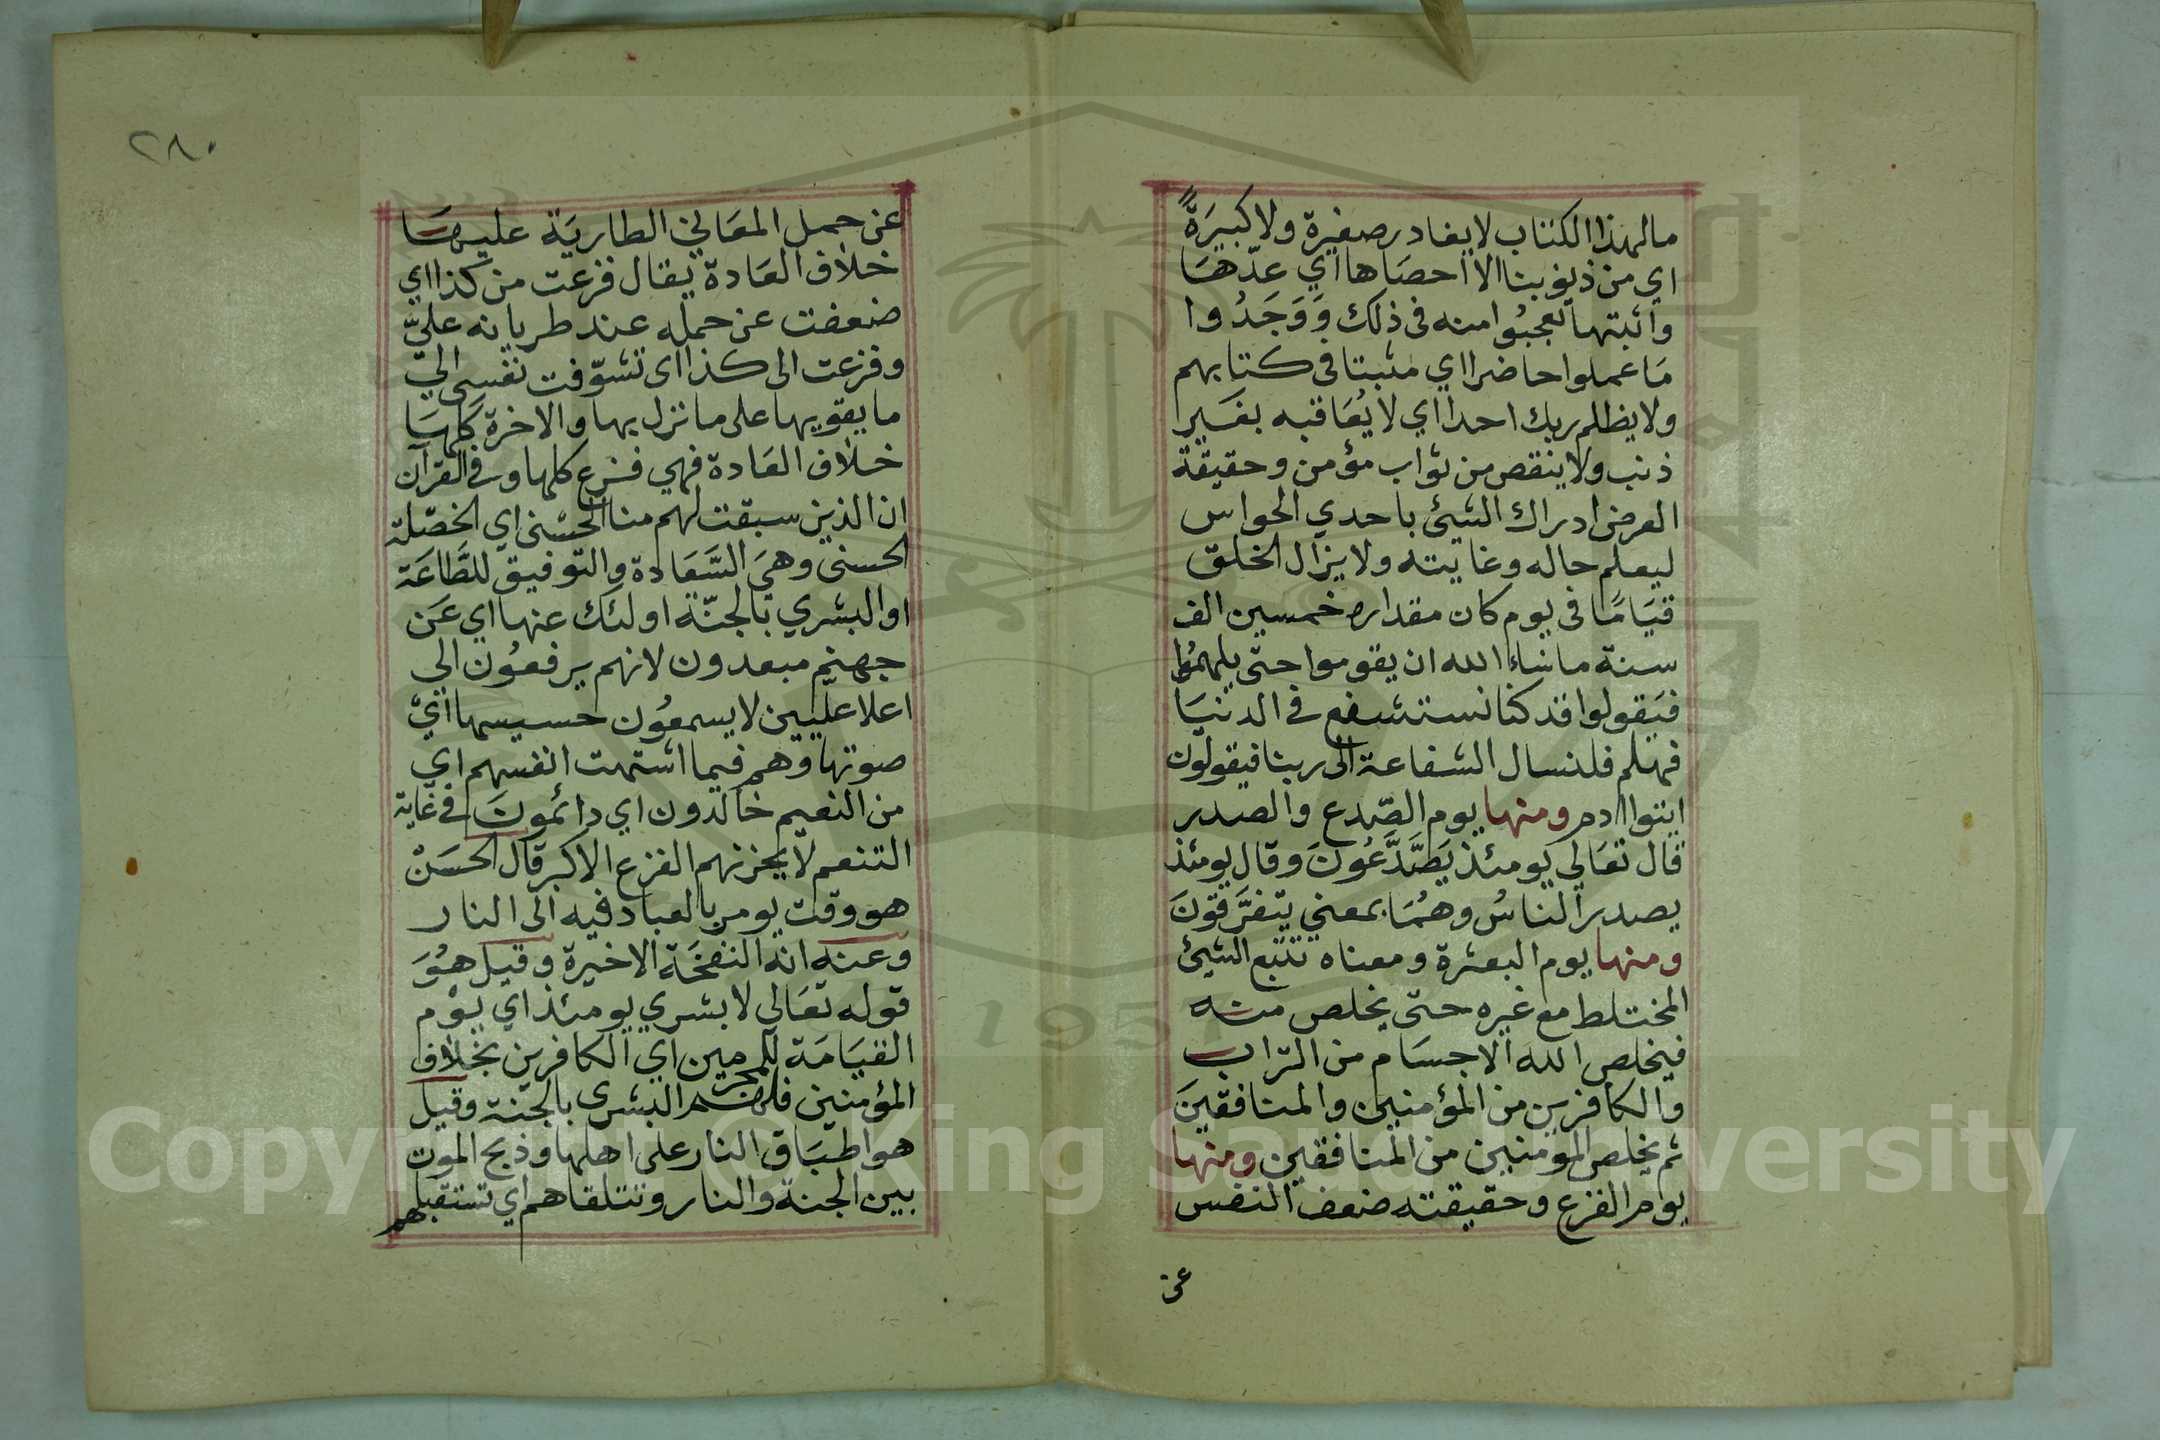 مالهذا الكتاب لايغادر صغيرة ولا كبيرَةً
اي من ذنوبنا الا احصَاها اي عدّهَا
واثبتها تعجبُوا منه فى ذلك وَوَجَدُوا
مَا عملوا حاضرا اي مثبتا فى كتابهم
ولايظلم ربك احدا اي لا يُعَاقبه بغَير
ذنب ولاينقص من ثواب مؤمن وحقيقة
العرض ادراك الشئ باحدي الحواس
ليعلم حاله وغايته ولا يزال الخلق
قيَامًا فى يوم كان مقداره خمسين الف
سنة ماشاء الله ان يقوموا حتى يلهمُوا
فيَقولوا قد كنا نستشفع في الدنيَا
فهلم فلنسال الشفاعة الى ربنا فيقولون
ايتوا ادم ومنها يوم الصّدع والصدر
قال تعَالي يومئذ يَصَّدَّعُونَ وقال يومئذ
يصدر الناسُ وهُمَا بمعني يتفرَّقونَ
ومنها يوم البعثرة ومعناه تتبع الشيئ
المختلط مع غيره حتى يخلص منه
فيخلص الله الاجسَام من التراب
والكافرين من المؤمنين والمنافقينَ
ثم يخلص المؤمنين من المنافقين ومنها
يوم الفزع وحقيقته ضعف النفس
عن
٢٨٠
عن حمل المعَاني الطاريَة عليهَا
خلاف العَادة يقال فزعت من كذا اي
ضعفت عن حمله عند طريانه عليّ
وفزعت الى كذا اى تشوّفت نفسي الي
ما يقويها على ما نزل بها والاخرة كلهَا
خلاف العَادة فهي فزع كلها وفي القرآن
ان الذين سبقت لهم منا الحسْنى اي الخصْلة
الحسنى وهيَ السَّعَادة والتوفيق للطَّاعَة
او البشري بالجنّة اولئك عنها اي عَن
جهنم مبعدون لانهم يرفعُون الى
اعلا عليين لا يسمعُون حسيسها ايْ
صوتها وهم فيما اشتهت انفسهم اي
من النعيم خالدون اي دائمونَ في غاية
التنعم لا يحزنهم الفزع الاكبر قال الحسَنْ
هو وقت يومر بالعباد فيه الى النار
وعنه انه النفخَة الاخيرة وقيل هُوَ
قوله تعَالي لا بشري يومئذ اي يوْم
القيَامَة للمجرمين اي الكافرين بخلاف
المؤمنين فلهم البشرى بالجنّة وقيل
هو اطبَاق النار على اهلها وذبح الموت
بين الجنة والنار وتتلقاهم اي تستقبلهم
1957
Copyright © King Saud University